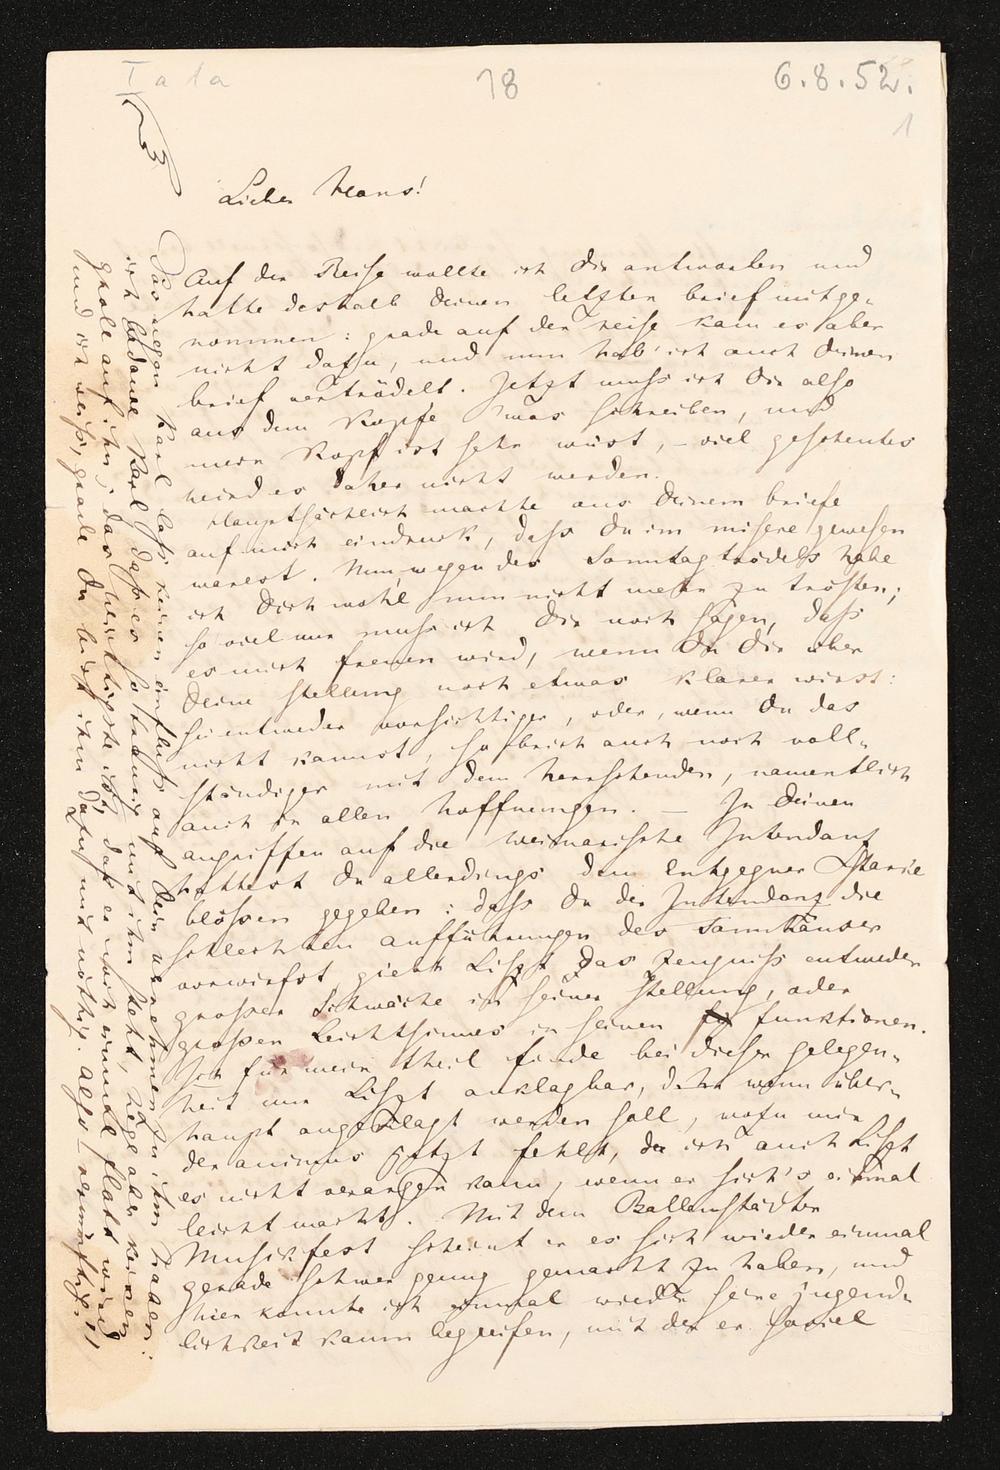 I a 1a
18
6.8.52.
1
Lieber Hans!
Auf der Reise wollte ich Dir antworten und
hatte deshalb Deinen letzten brief mitge-
nommen: grade auf der reise kam es aber
nicht dazu, und nun hab' ich auch Deinen
brief vertrödelt. Jetzt muss ich Dir also
aus dem Kopfe 'was schreiben, und
mein Kopf ist sehr wüst, – viel gescheutes
wird es daher nicht werden.
Hauptsächlich machte aus Deinem briefe
auf mich eindruck, dass Du im misère gewesen
warest. Nun, wegen des Sonntagtrödels habe
ich Dich wohl nun nicht mehr zu trösten;
so viel nur muss ich Dir noch sagen, dass
es mich freuen wird, wenn Du Dir über
Deine stellung noch etwas klarer wirst:
sei entweder vorsichtiger, oder, wenn Du das
nicht kannst, so brich auch noch voll-
ständiger mit dem herrschenden, namentlich
auch in allen hoffnungen. — In Deinen
angriffen auf die weimarische Intendanz
hattest Du allerdings dem entgegner
blössen gegeben: dass Du der Intendanz die
schlechten aufführungen des Tannhäuser
vorwirfst giebt Liszt das zeugniss entweder
grosser Schwäche in seiner stellung, oder
grossen leichtsinnes in seinen funktionen.
Ich für mein theil finde bei dieser gelegen-
heit nur Liszt anklagbar, d. h. wenn über-
haupt angeklagt werden soll, wozu mir
der animus jetzt fehlt, da ich auch Liszt
es nicht verargen kann, wenn er sich's einmal
leicht macht. Mit dem Ballenstädter
Musikfest scheint er es sich wieder einmal
gerade schwer genug gemacht zu haben, und
hier konnte ich einmal wieder seine jugend-
lichkeit kaum begreifen, mit der er soviel
Was wegen Karl lass keinen einfluss auf Dein vernehmen zu ihm haben:
ich bedaure Karl dass es so traurig mit ihm steht, hege aber keinen
groll auf ihn; das wichtigste ist, dass er noch einmal flott wird
und ich weiss, grade Du bist ihm dazu mit nöthig. also – vernünftig!!